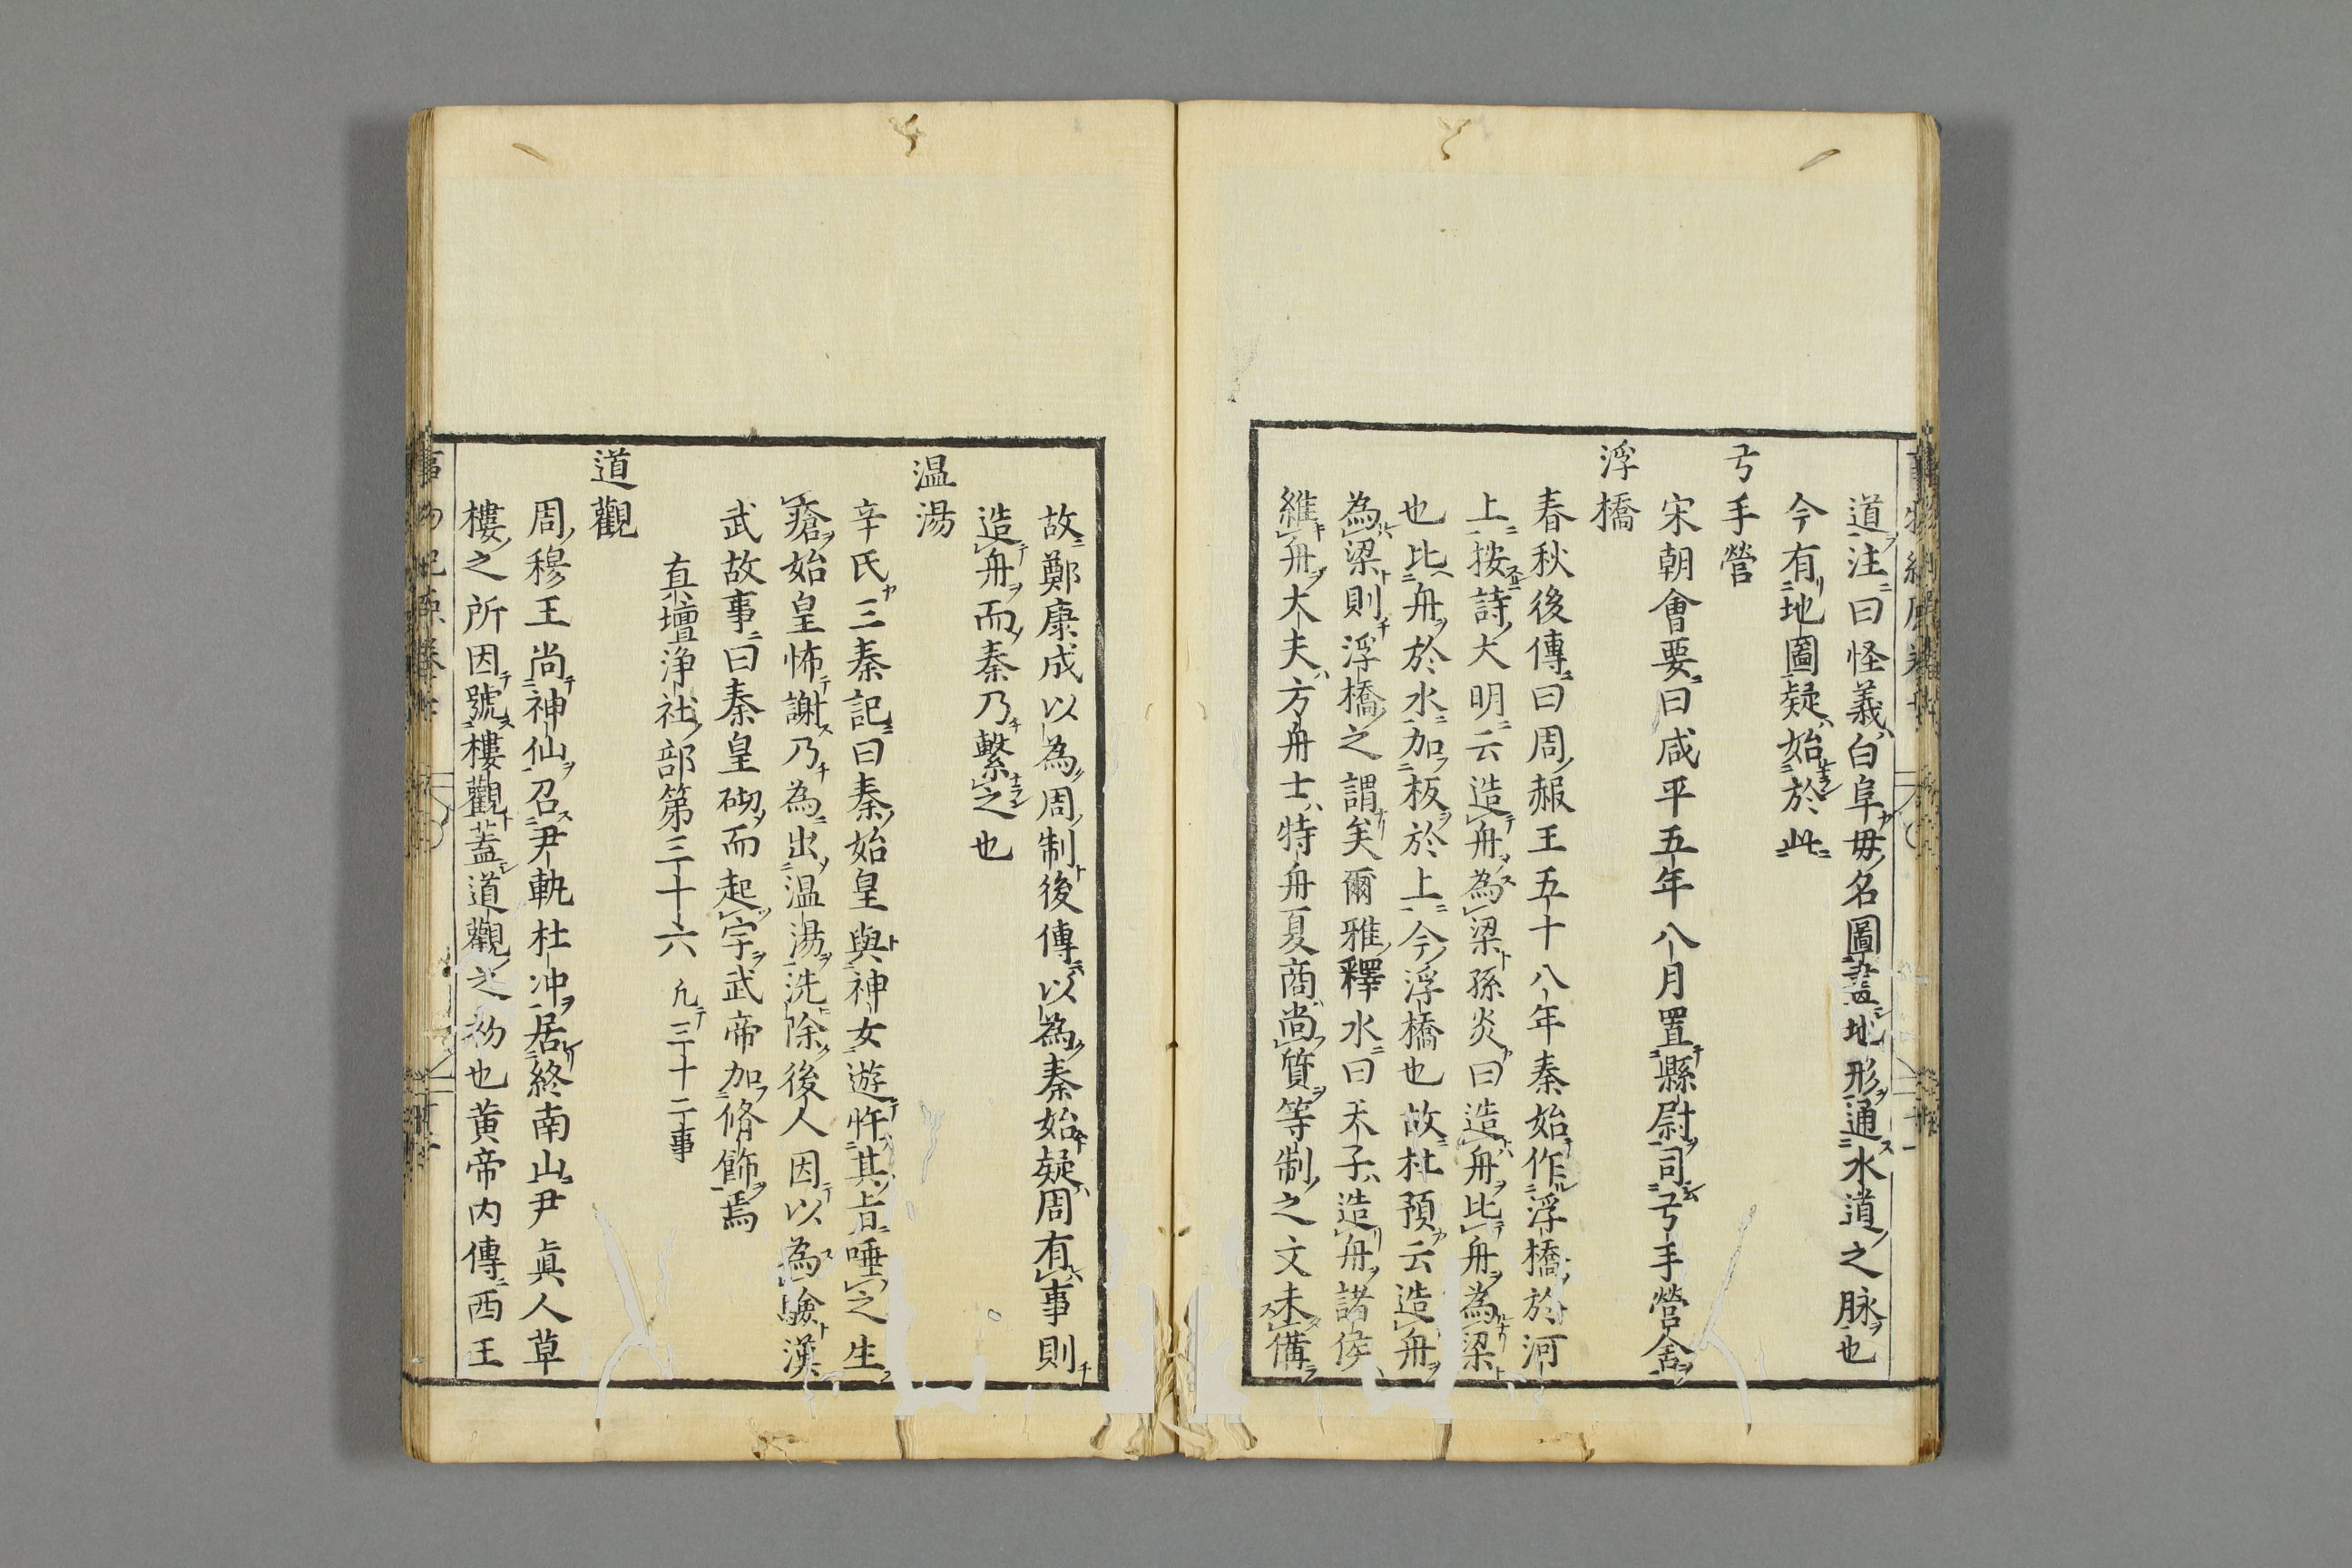 道注曰怪義白阜毋名圖畫地形通水道之脉也
今有地圖疑始於此
弓手營
宋朝會要曰咸平五年八月置縣尉司弓手營舍
浮橋
春秋後傳曰周赧王五十八年秦始作浮橋於河
上按詩大明云造舟為梁孫炎曰造舟比舟為梁
也比舟於水加板於上今浮橋也故杜預云造舟
為梁則浮橋之謂矣爾雅釋水曰天子造舟諸侯
維舟大夫方舟士特舟夏商尚質等制之文未備
故鄭康成以為周制後傳以為秦始疑周有事則
造舟而秦乃繫之也
温湯
辛氏三秦記曰秦始皇與神女遊忤其旨唾之生
瘡始皇怖謝乃為出温湯洗除後人因以為驗漢
武故事曰秦皇砌而起宇武帝加脩飾焉
真壇浄社部第三十六 凡三十二事
道觀
周穆王尚神仙召尹軌杜冲居終南山尹真人草
樓之所因號樓觀蓋道觀之初也黄帝内傳西王